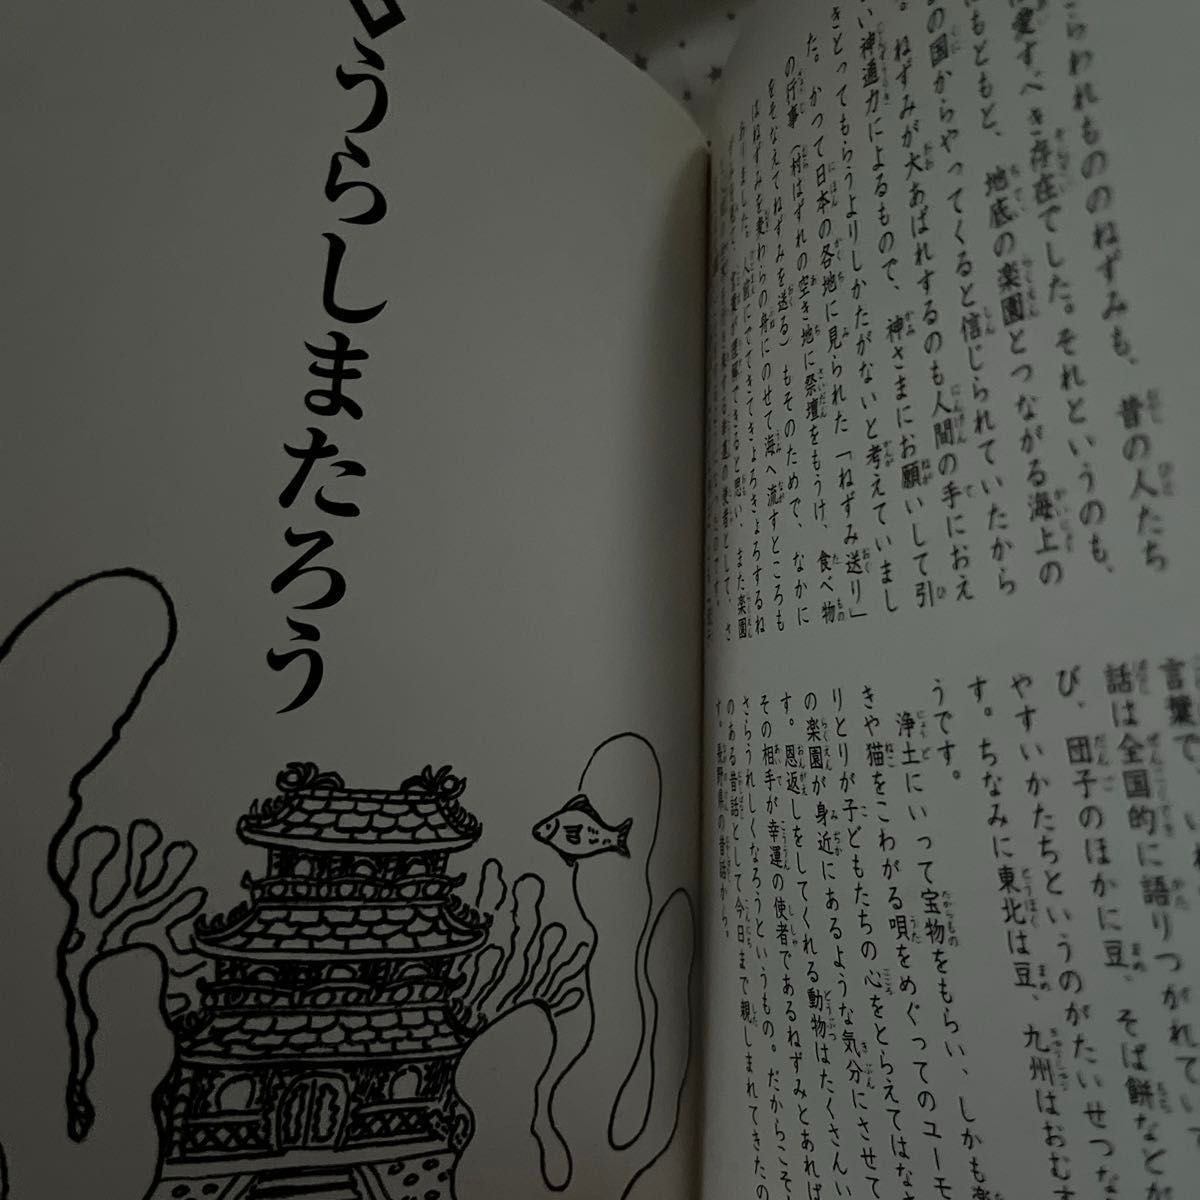 らわれもののねずみも、昔の人たち
愛すべき存在でした。それというのも、
もともと、地底の楽園とつながる海上の
の国からやってくると信じられていたから
。ねずみが大あばれするのも人間の手におえ
い神通力によるもので、神さまにお願いして引
きとってもらうよりしかたがないと考えていまし
た。かつて日本の各地に見られた「ねずみ送り」
の行事(村はずれの空き地に祭壇をもうけ、食べ物
をそなえてねずみを送る)もそのためで、なかに
はねずみを麦わらの舟にのせて海へ流すところも
ありました。
言葉で、い
話は全国的に語りつがれていて
び、団子のほかに豆、そば餅などが
やすいかたちというのがたいせつな
す。ちなみに東北は豆、九州はおむす
うです。
浄土にいって宝物をもらい、しかも
きや猫をこわがる唄をめぐってのユーモ
りとりが子どもたちの心をとらえてはな
の楽園が身近にあるような気分にさせて
す。恩返しをしてくれる動物はたくさんい
その相手が幸運の使者であるねずみとあれば
さらうれしくなろうというもの。だからこそ、
のある昔話として今日まで親しまれてきたの
す。長野県の昔話から。
うらしまたろう